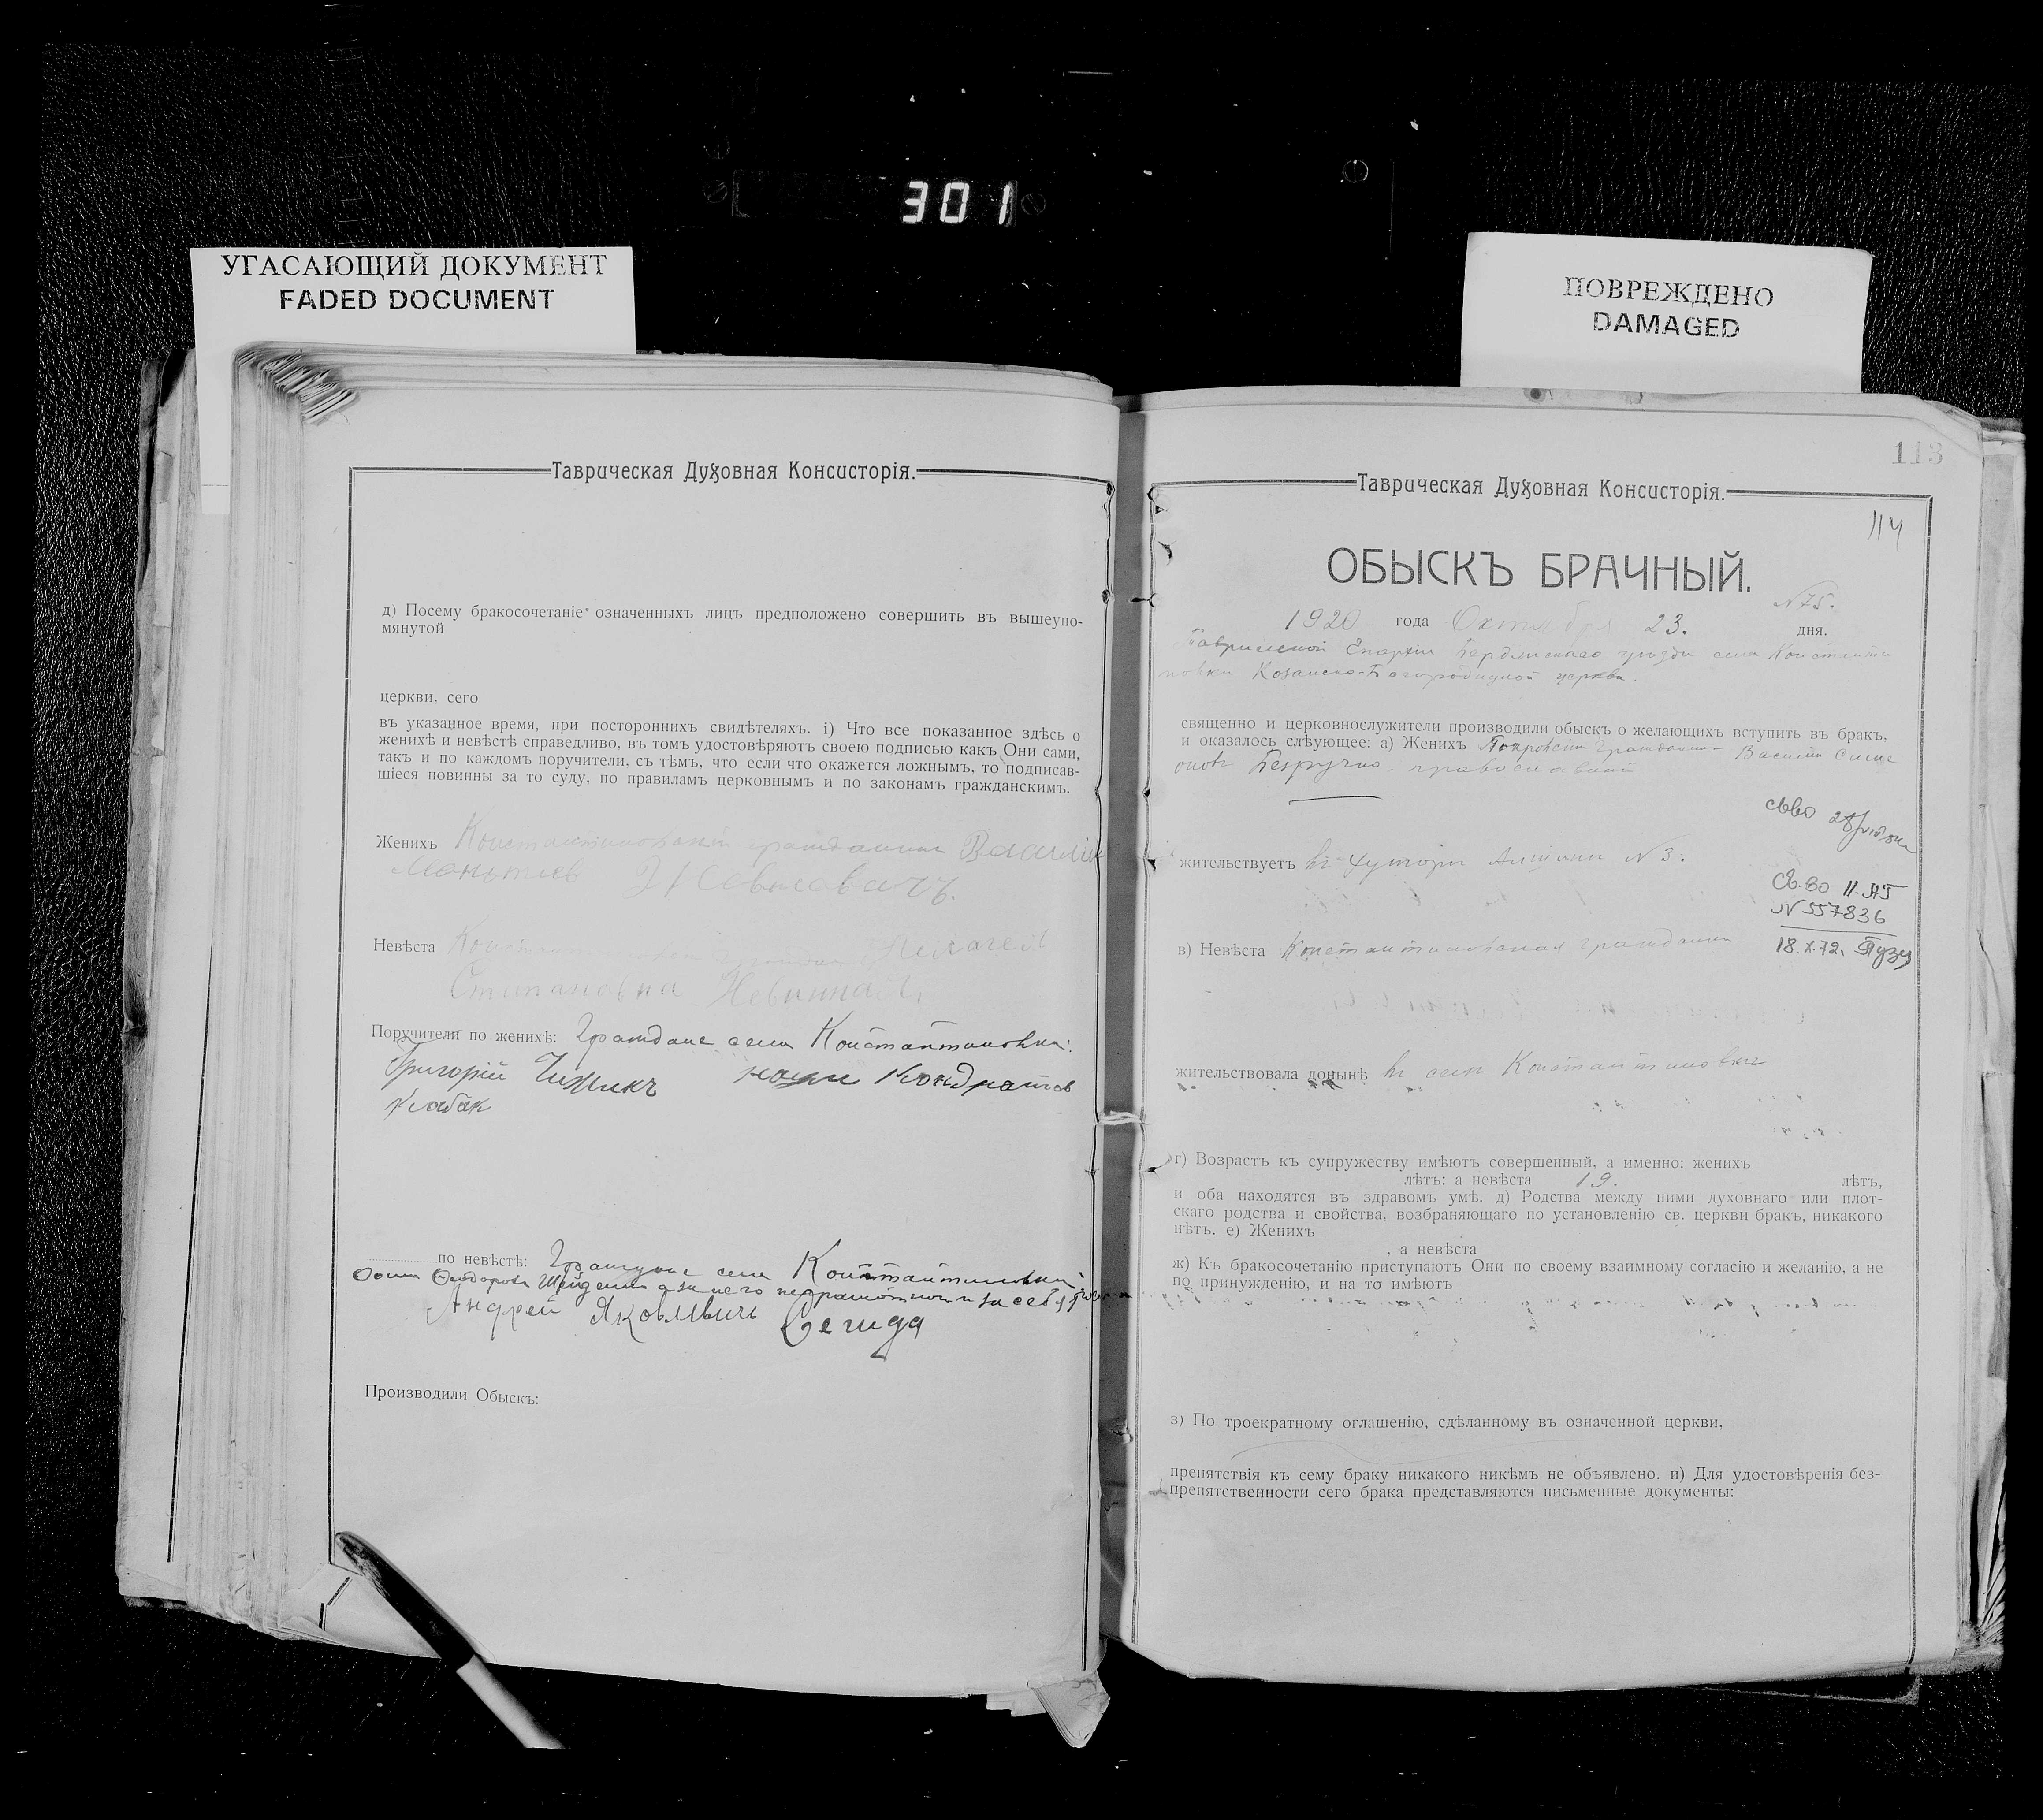 301
УГАСАЮЩИЙ ДОКУМЕНТ
FADED DOCUMENT
ПОВРЕЖДЕНО
DAMAGED
Таврическая Духовная Консисторія.
д) Посему бракосочетаніе означенныхъ лицъ предположено совершить въ вышеупо-
мянутой
церкви, сего
въ указанное время, при постороннихъ свидѣтеляхъ. i) Что все показанное здѣсь о
женихѣ и невѣстѣ справедливо, въ томъ удостовѣряютъ своею подписью какъ Они сами,
такъ и по каждомъ поручители, съ тѣмъ, что если что окажется ложнымъ, то подписав-
шіеся повинны за то суду, по правиламъ церковнымъ и по законамъ гражданскимъ.
Женихъ Константиновскій гражданинъ Василій
Невѣста Пелагея
Степановна Невинная
Поручители по женихѣ: Граждане села Константиновки:
Григорій Чижикъ Кондратов
по невѣстѣ: Граждане села Константиновки:
Андрей Яковлевичъ Сегида
Производили Обыскъ:
113
Таврическая Духовная Консисторія.
114
ОБЫСКЪ БРАЧНЫЙ.
N 75.
1920 года Октября 23. дня.
Таврической Епархіи Бердянскаго уѣзда села Константи
новки Казанско-Богородичной церкви.
священно и церковнослужители производили обыскъ о желающихъ вступить въ бракъ,
и оказалось слѣующее: а) Женихъ Покровскій гражданинъ Василій Симе
оновъ Безручко, православный
жительствуетъ въ хуторѣ N 3.
Св.во II-АП
N 557836
18.X.72.
в) Невѣста Константиновская гражданка
жительствовала донынѣ въ селѣ Константиновкѣ
г) Возрастъ къ супружеству имѣютъ совершенный, а именно: женихъ
лѣтъ: а невѣста 19. лѣтъ,
и оба находятся въ здравомъ умѣ. д) Родства между ними духовнаго или плот-
скаго родства и свойства, возбраняющаго по установленію св. церкви бракъ, никакого
нѣтъ. е) Женихъ
, а невѣста
ж) Къ бракосочетанію приступаютъ Они по своему взаимному согласію и желанію, а не
по принужденію, и на то имѣютъ
з) По троекратному оглашенію, сдѣланному въ означенной церкви,
препятствія къ сему браку никакого никѣмъ не объявлено. и) Для удостовѣренія без-
препятственности сего брака представляются письменные документы: